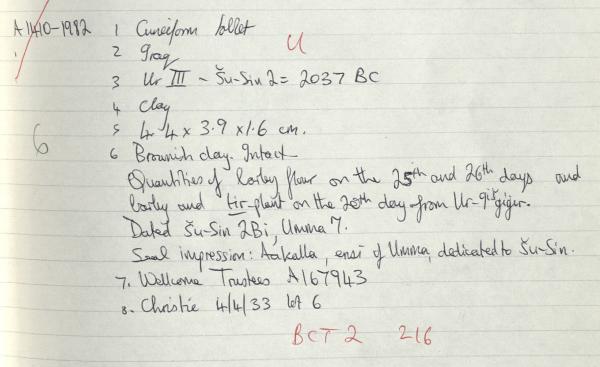 A1410-1982 1 Cuneiform tablet
U
2 Iraq
3 Ur III ~ Šu-Sin 2 = 2037 BC
4 Clay
5 4.4 x 3.9 x 1.6 cm.
6
6 Brownish clay. Intact
Quantities of barley flour on the 25th and 26th days and
barley and tir-plant on the 20th day from Ur-gišgigir.
Dated Šu-Sin 2Bi, Umma 7.
Seal impression: Aakalla, ensi of Umma, dedicated to Šu-Sin.
7. Wellcome Trustees A167943
8. Christie 4/4/33 lot 6
BCT 2 216